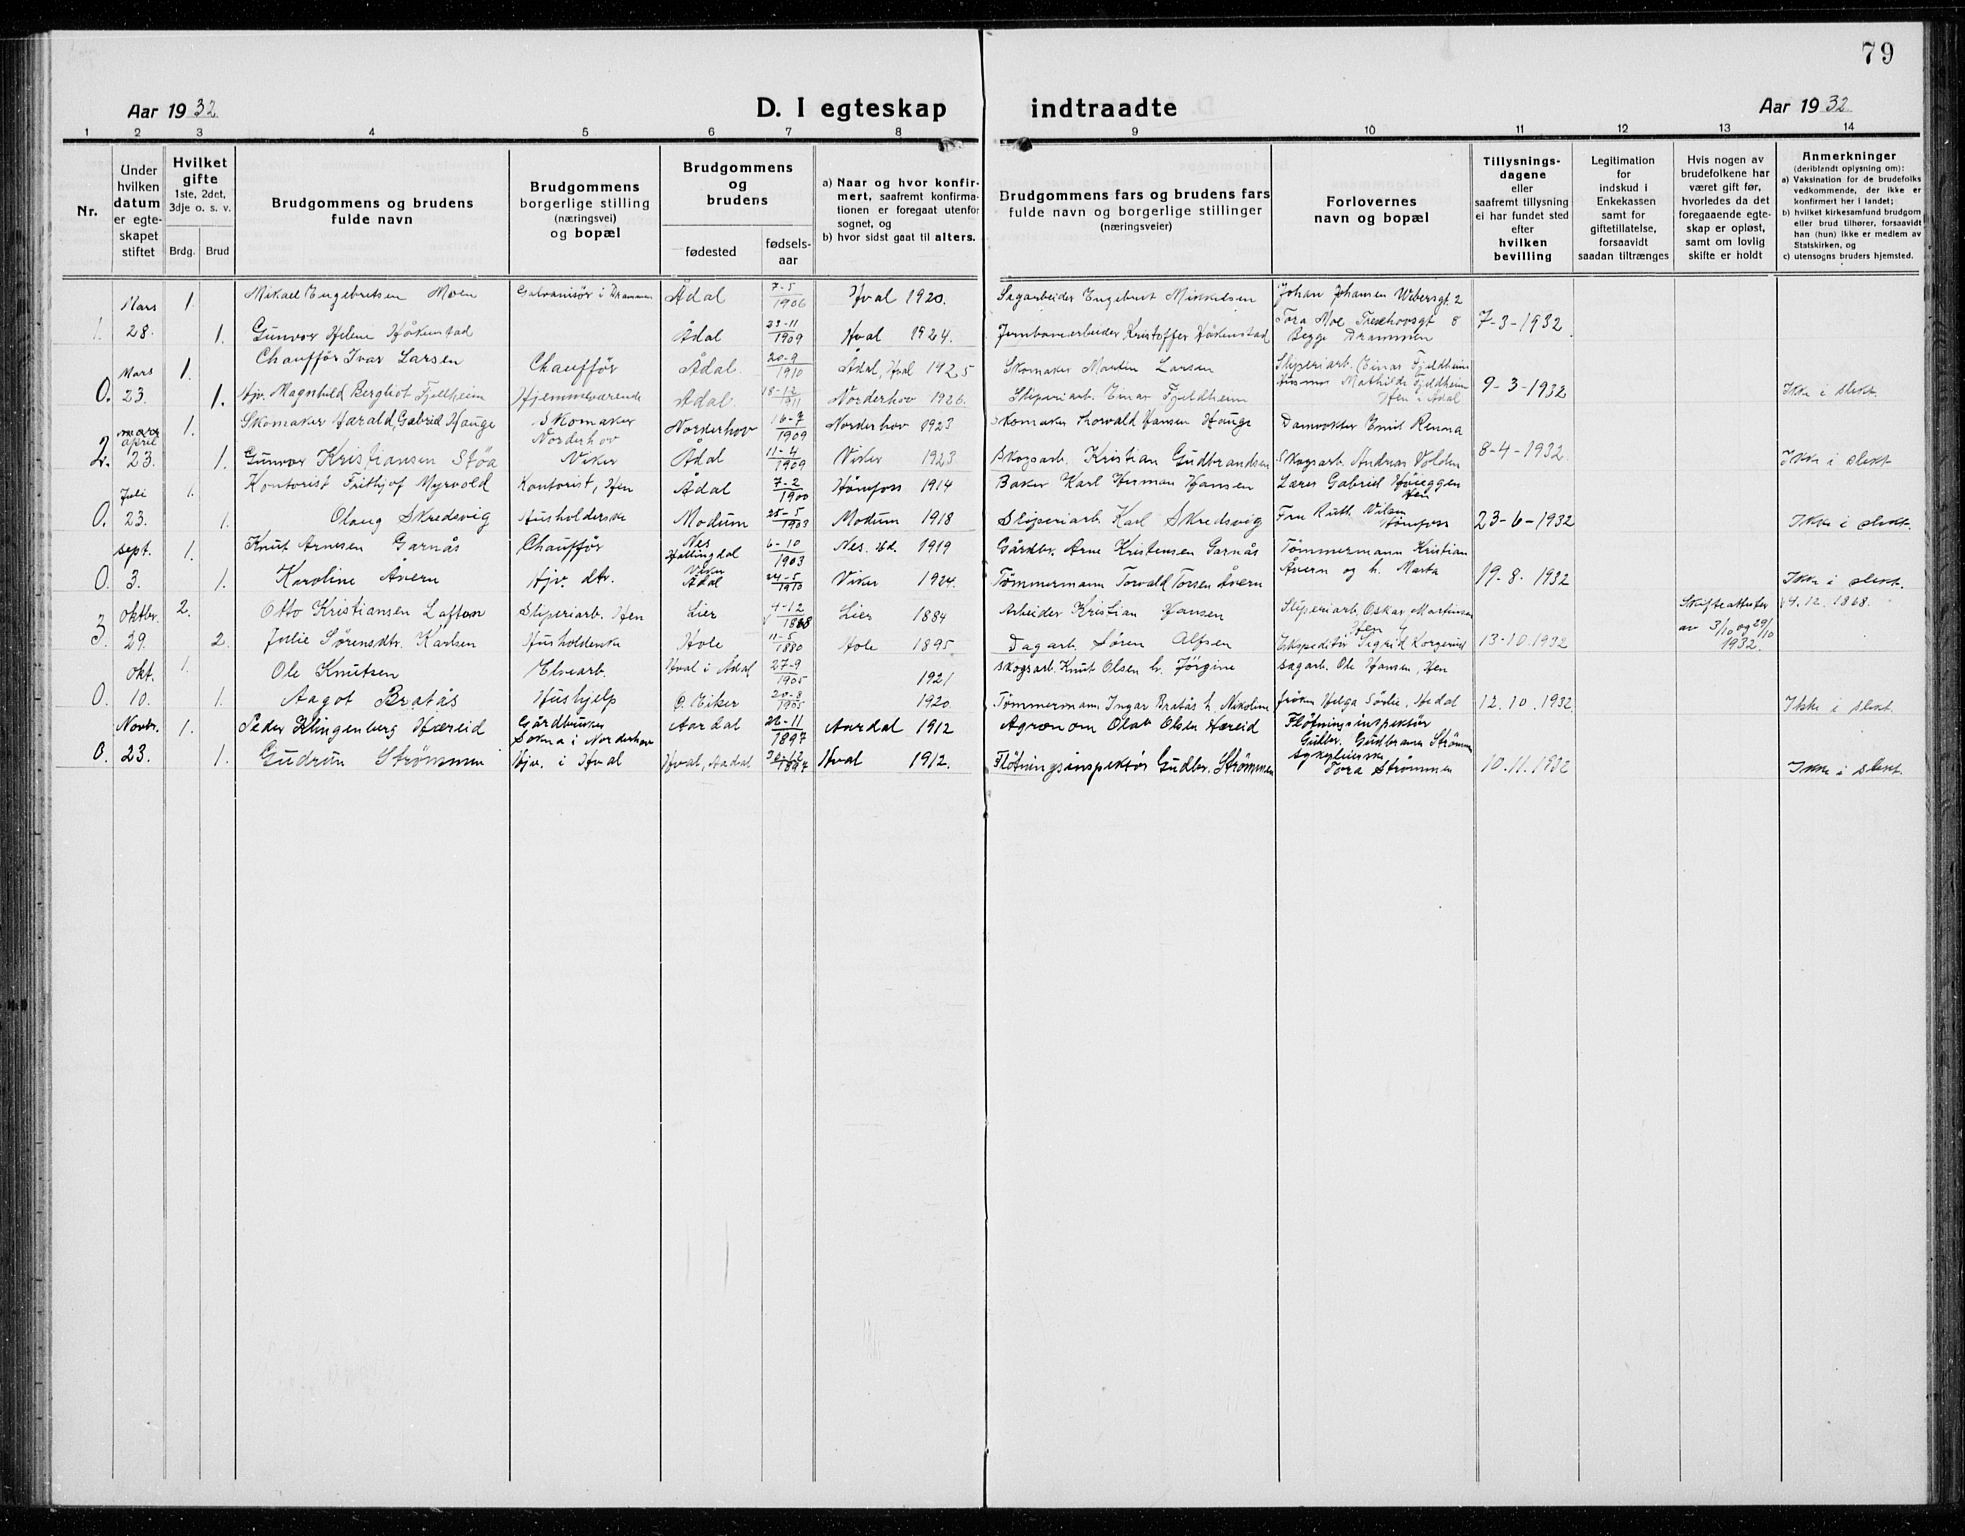 79
Aar 1932
D. I egteskap
indtraadte
Aar 1932
1 2 3 4 5 6 7 8 9 10 11 12 13 14
Nr.
Under
hvilken
datum
er egte-
skapet
stiftet
Hvilket
gifte
1ste, 2det,
3dje o. s. v.
Brdg. Brud
Brudgommens og brudens
fulde navn
Brudgommens
borgerlige stilling
(næringsvei)
og bopæl
Brudgommens
og
brudens
fødested
fødsels-
aar
a) Naar og hvor konfir-
mert, saafremt konfirma-
tionen er foregaat utenfor
sognet, og
b) hvor sidst gaat til alters.
Brudgommens fars og brudens fars
fulde navn og borgerlige stillinger
(næringsveier)
Forlovernes
navn og bopæl
Tillysnings-
dagene
eller
saafremt tillysning
ei har fundet sted
efter
hvilken
bevilling
Legitimation
for
indskud i
Enkekassen
samt for
giftetillatelse,
forsaavidt
saadan tiltrænges
Hvis nogen av
brudefolkene har
været gift før,
hvorledes da det
foregaaende egte-
skap er opløst,
samt om lovlig
skifte er holdt
Anmerkninger
(deriblandt oplysning om):
a) Vaksination for de brudefolks
vedkommende, der ikke er
konfirmert her i landet;
b) hvilket kirkesamfund brudgom
eller brud tilhører, forsaavidt
han (hun) ikke er medlem av
Statskirken, og
c) utensogns bruders hjemsted.
Mars 1. Mikael Engebretsen Moen Galvanisør i Drammen Ådal 7-5 1906 Hval 1920. Sagarbeider Engebret Mikkelsen Johan Johansen Webersgt. 2
1. 28. 1. Gunvor Helene Håkenstad Ådal 23-11 1909 Hval 1924. Jernbanearbeider Kristoffer Håkenstad Tora Moe 8 Begge Drammen 7-3-1932
Mars 1. Chauffør Ivar Larsen Chauffør Ådal 20-9 1910 Ådal, Hval 1925 Skomaker Martin Larsen Sliperiarb. Einar Fjeldheim
0. 23. 1. Hjv. Magnhild Berghot Fjellheim Hjemmeværende Ådal 18-12 1911 Norderhov 1926. Sliperiarb. Einar Fjeldheim Husmor Mathilde Fjeldheim Hen i Ådal 9-3-1932 Ikke i slekt
mars april 1. Skomaker Harald Gabriel Hauge Skomaker Norderhov Norderhov 16-7 1909 Norderhov 1923 Skomaker Thorvald Hansen Hauge Damvokter Emil Renna
2. 23. 1. Gunvor Kristiansen Støa Viker Ådal 11-4 1909 Viker 1923 Skogsarb. Kristian Gudbrandsen Skogsarb. Andreas Volden 8-4-1932 Ikke i slekt
Juli 1. Kontorist Frithjof Myrvold Kontorist, Hen Ådal 7-2 1900 Hønefoss 1914 Baker Karl Herman Hansen Lærer Gabriel Høveggen Hen
0. 23. 1. Olaug Skredsvig Husholderske Modum 25-5 1903 Modum 1918 Sliperiarb. Karl Skredsvig Fru Ruth Hønefoss 23-6-1932 Ikke i slekt.
sept. 1. Knut Arnesen Garnås Chauffør Nes Hallingdal 6-10 1903 Nes. Hd. 1919 Gårdbr. Arne Kristensen Garnås Tømmermann Kristian
0. 3. 1. Karoline Åvern Hjv. dtr. Viker Ådal 24-5 1910 Viker 1924. Tømmermann Torvald Torsen Åvern Åvern og h. Marta 19.8.1932 Ikke i slekt.
oktbr. 2. Otto Kristiansen Lafton Sliperiarb. Hen Lier 4-12 1868 Lier 1884 Arbeider Kristian Hansen Sliperiarb. Oskar Martinsen Hen Skifteattester 4.12.1868.
3. 29. 2. Julie Sørensdtr. Karlsen Husholderske Hole 11-5 1880 Hole 1895 Dagarb. Søren Alfsen Ekspeditør Sigrid Korgerud 13-10.1932 av 3/10 og 29/10 1932.
okt. 1. Ole Knutsen Elvearb. Hval i Ådal 27-9 1905 1921 Skogsarb. Knut Olsen h. Jørgine Sagarb. Ole Hansen, Hen
0. 10. 1. Aagot Bratås Hushjelp Ø. Eiker 20-8 1905 1920. Tømmermann Ingar Bratås h. Nikoline frøken Helga Sørlie, Hedal 12.10.1932 Ikke i slekt
Novbr. 1. Peder Klingenberg Hæreid Gårdbruker Sokna i Norderhov Aardal 26-11 1897 Aardal 1912 Agronom Olav Olsen Hæreid Fløtningsinspektør Gulbr. Gudbrand Strømmen
0. 23. 1. Gudrun Strømmen Hjv. i Hval Hval, Aadal 1897 Hval 1912. Fløtningsinspektør Gudbr. Strømmen Sykepleierske Tora Strømmen 10.11.1932 Ikke i slekt.